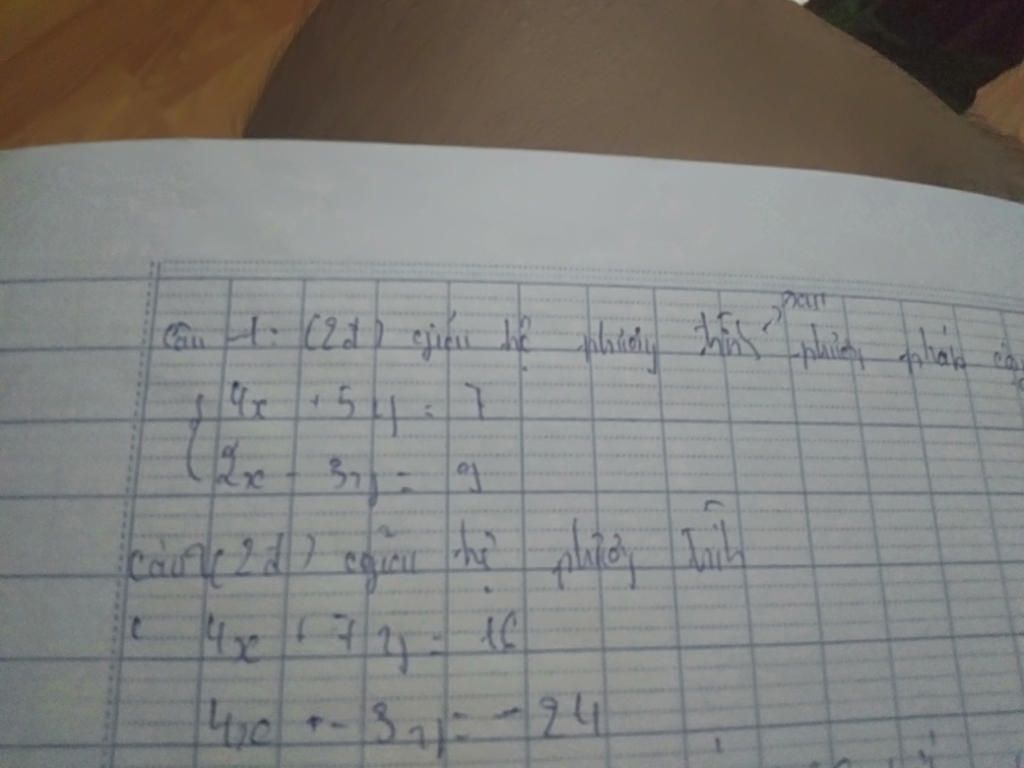 Câu 1: (2đ) giải hệ phương trình sau phương pháp
4x + 5y = 7
2x - 3y = 9
câu 2 (2đ) giải hệ phương trình
4x + 7y = 16
4x + - 3y = - 24